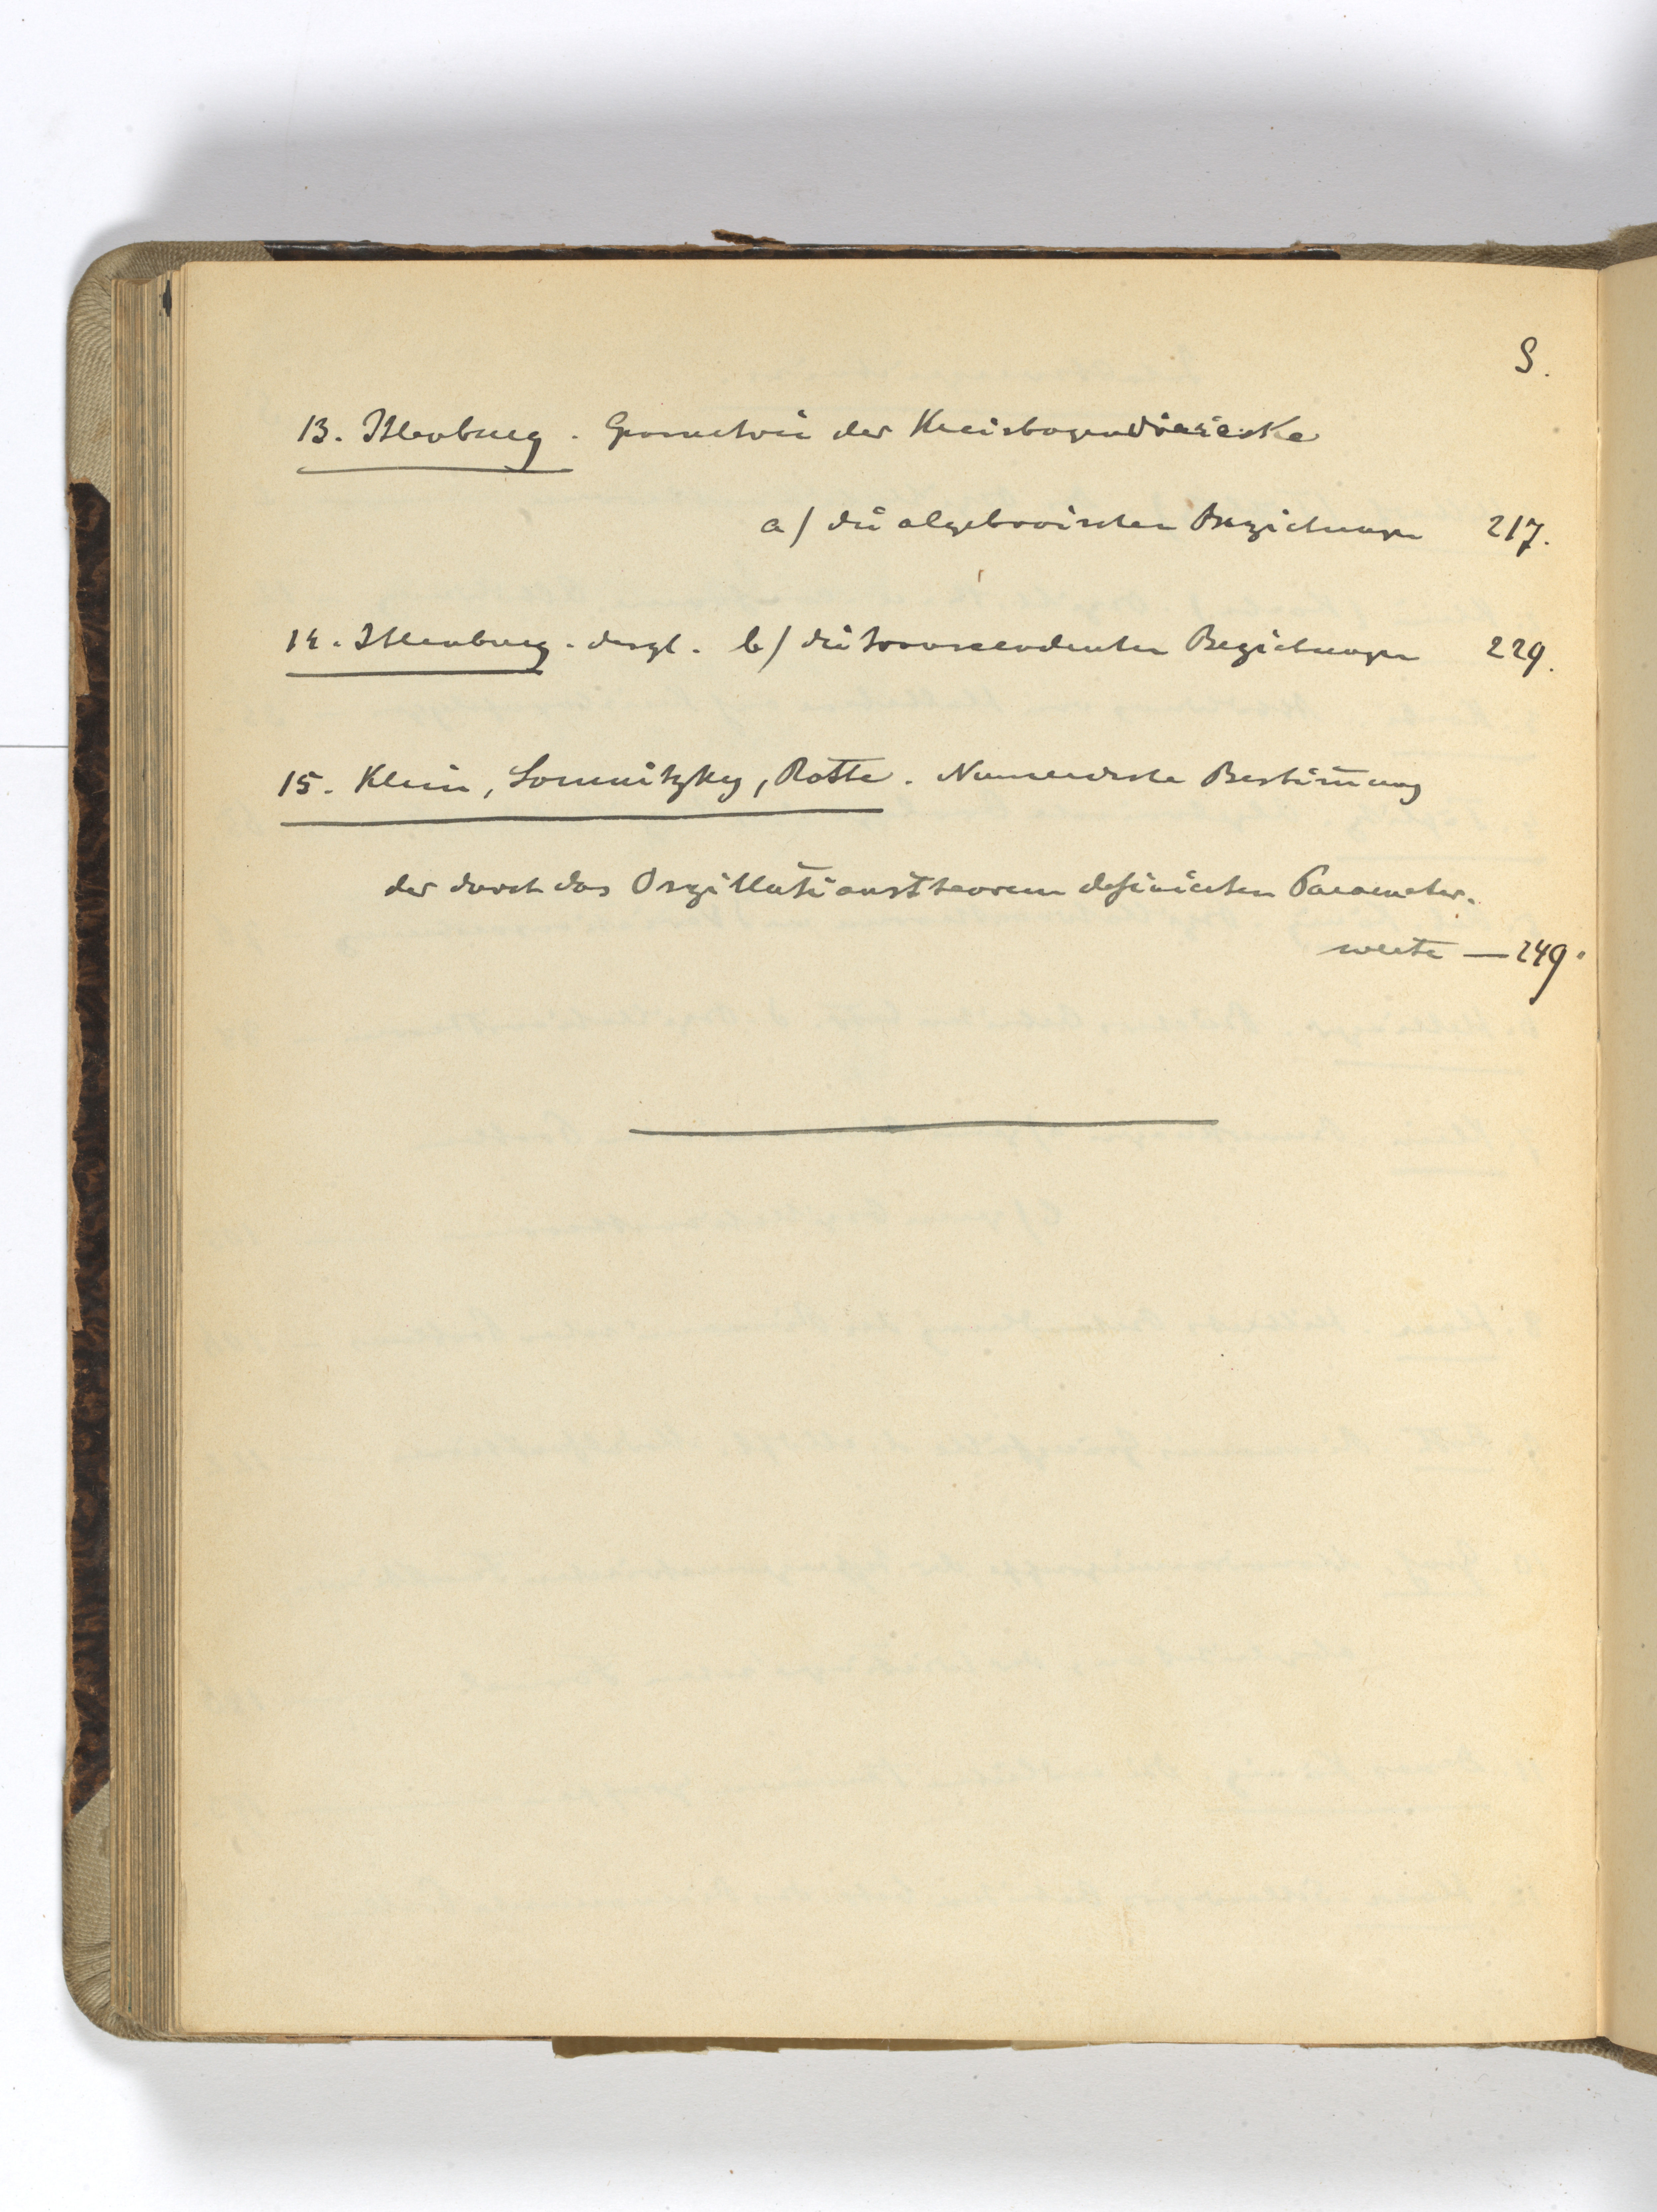 S.
13. Ihlenburg. Geometrie der Kreisbogenvierecke
a) die algebraischen Beziehungen 217.
14. Ihlenburg. desgl. b) die transcendenten Beziehungen 229.
15. Klein, Rothe. Numerische Bestim̅ung
der durch das Oszillationstheorem definierten Parameter-
werte — 249.